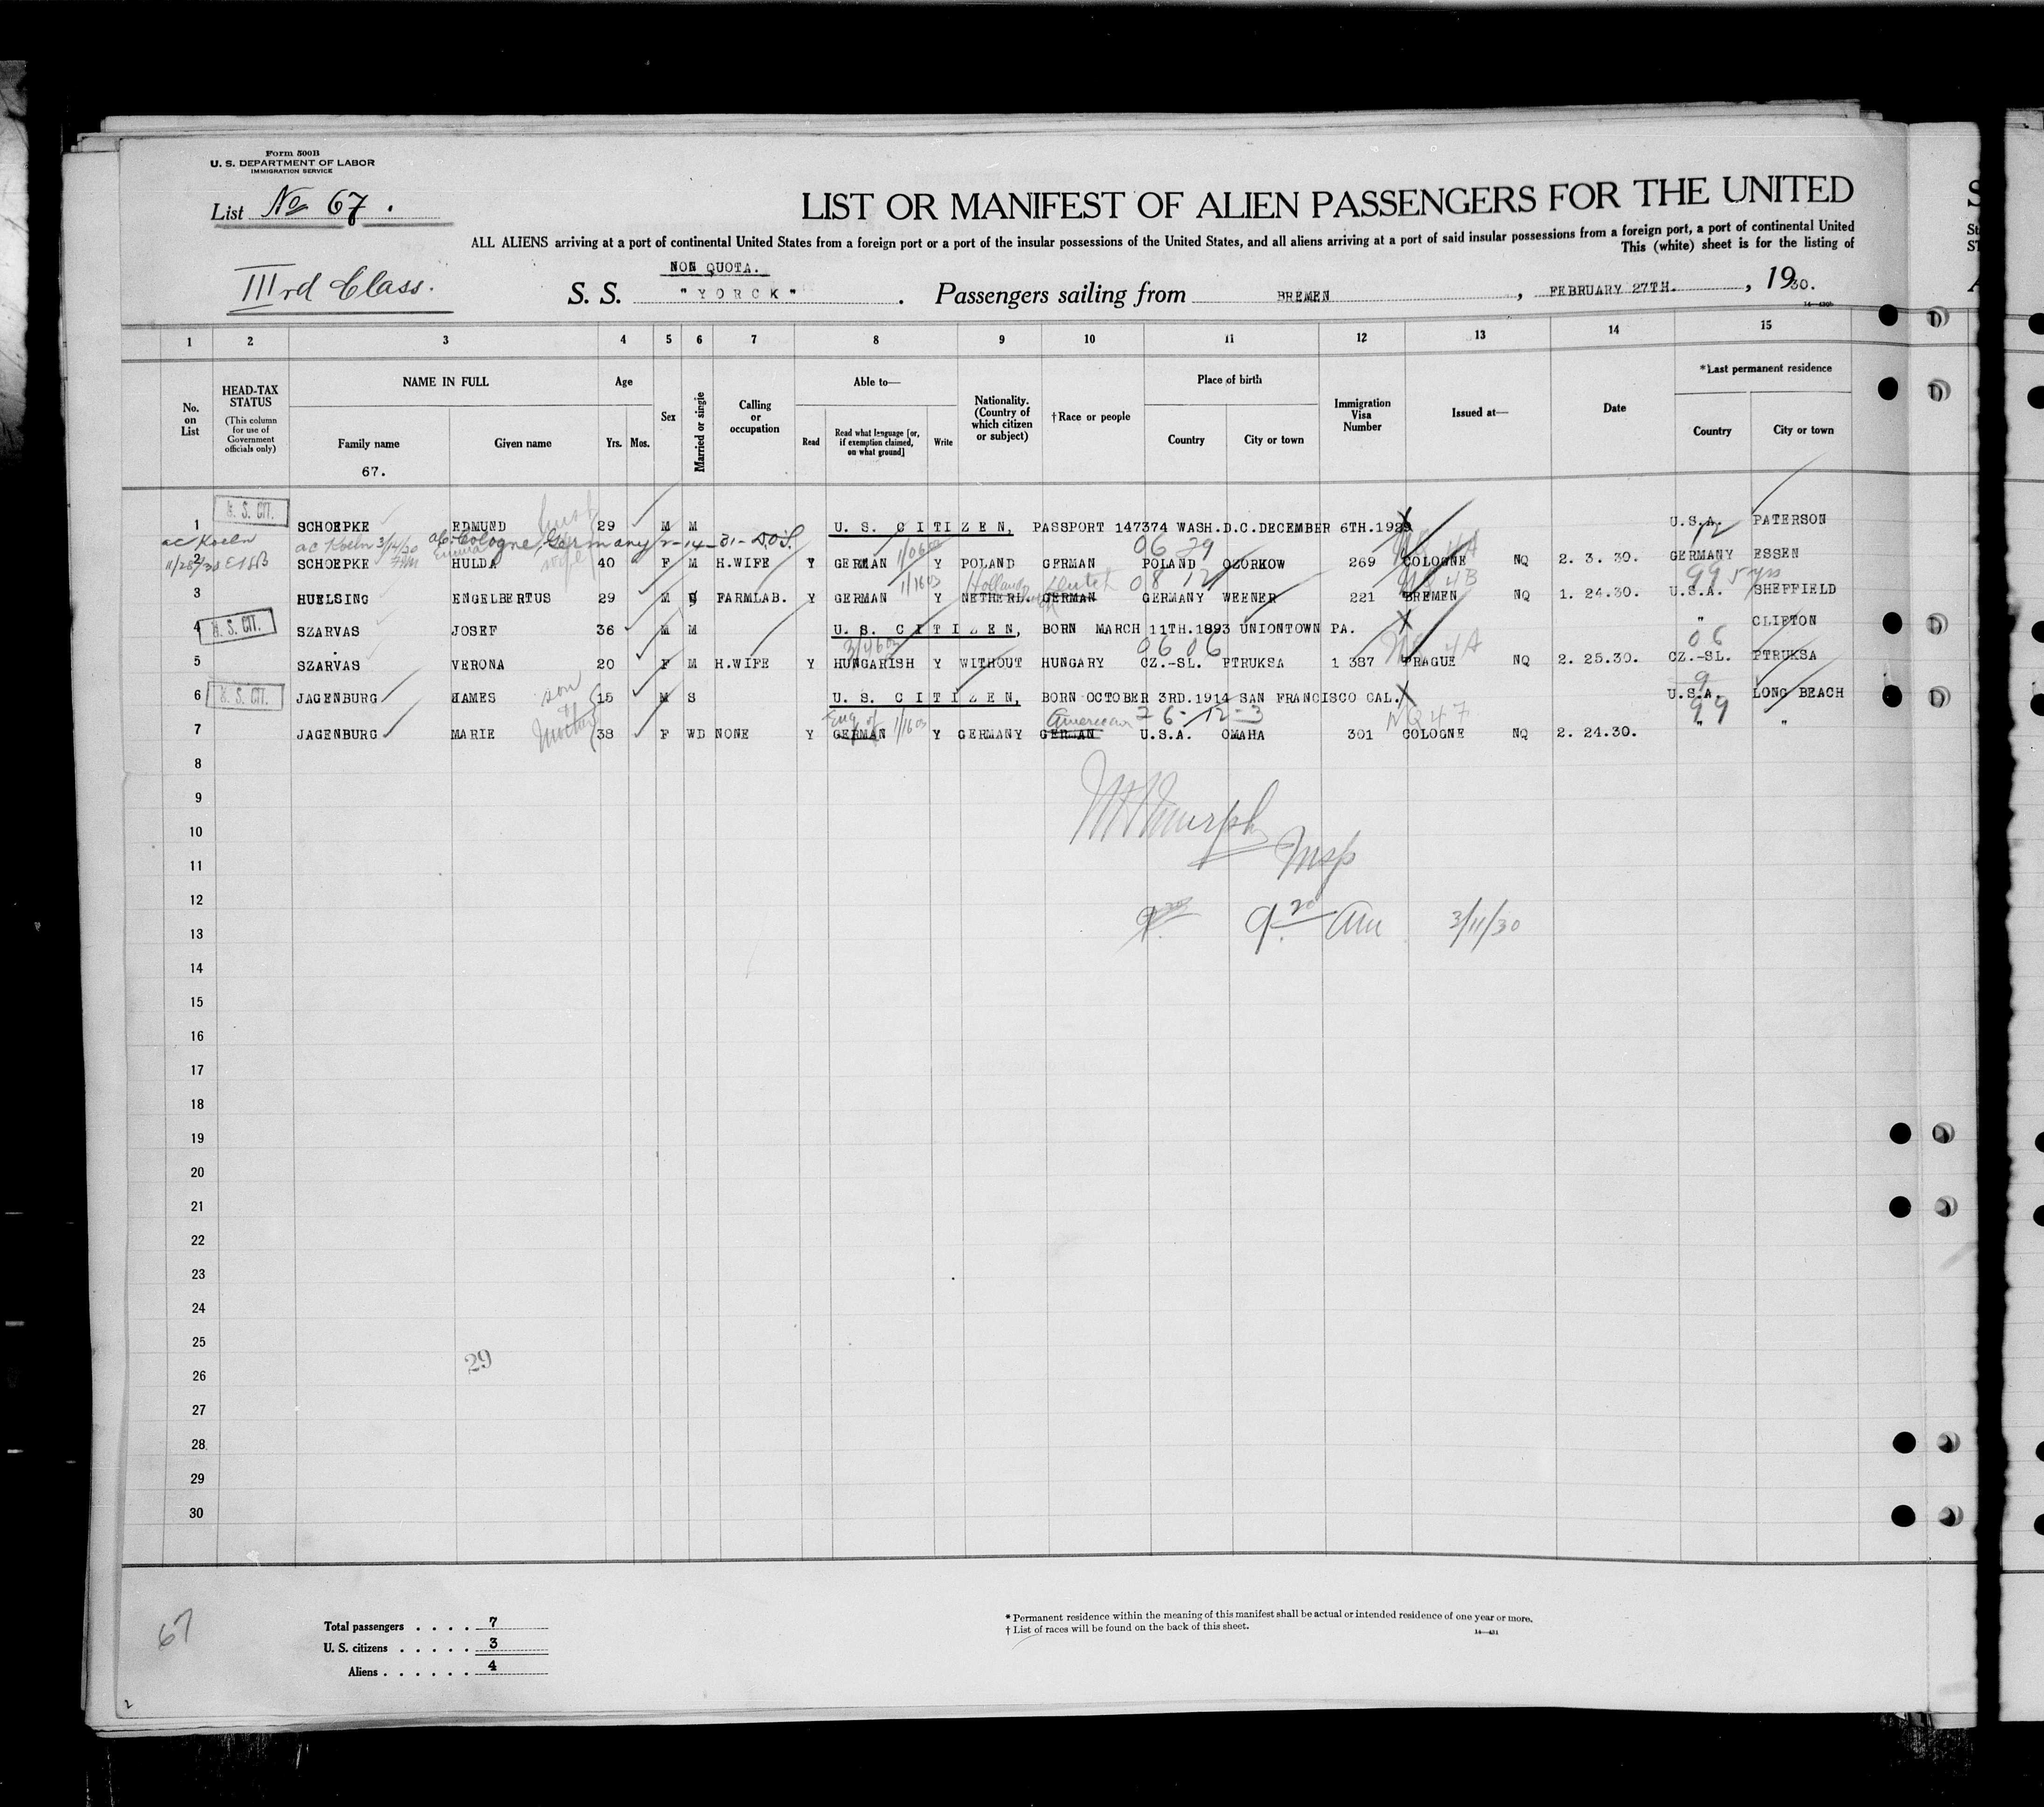 Form 500B
U. S. DEPARTMENT OF LABOR
IMMIGRATION SERVICE
List No 67.
LIST OR MANIFEST OF ALIEN PASSENGERS FOR THE UNITED
ALL ALIENS arriving at a port of continental United States from a foreign port or a port of the insular possessions of the United States, and all aliens arriving at a port of said insular possessions from a foreign port, a port of continental United
This (white) sheet is for the listing of
IIIrd Class.
NON QUOTA.
S. S. "YORCK". Passengers sailing from BREMEN, FEBRUARY 27TH., 1930.
1 2 3 4 5 6 7 8 9 10 11 12 13 14 15
No. on List
HEAD-TAX STATUS
(This column for use of Government officials only)
NAME IN FULL
Family name
67.
Given name
Age
Yrs. Mos.
Sex
Married or single
Calling or occupation
Able to—
Read
Read what language [or, if exemption claimed, on what ground]
Write
Nationality. (Country of which citizen or subject)
†Race or people
Place of birth
Country
City or town
Immigration Visa Number
Issued at—
Date
*Last permanent residence
Country
City or town
1 U. S. CIT. SCHOEPKE EDMUND 29 M M U. S. CITIZEN, PASSPORT 147374 WASH.D.C.DECEMBER 6TH.1929 U.S.A. PATERSON
ac Koeln ac Koeln 3/14/30 a/c Cologne, Germany, 2-14-31- D.O.S. 1/0603 06 29 12
2 SCHOEPKE HULDA wife 40 F M H.WIFE Y GERMAN Y POLAND GERMAN POLAND OZORKOW 269 COLOGNE NQ 2. 3. 30. GERMANY ESSEN
1/1603 Holland Dutch 08 12 NQ 4B 99 5 yrs
3 HUELSING ENGELBERTUS 29 M FARMLAB. Y GERMAN Y NETHERL. GERMAN GERMANY WEENER 221 BREMEN NQ 1. 24.30. U.S.A. SHEFFIELD
4 U. S. CIT. SZARVAS JOSEF 36 M M U. S. CITIZEN, BORN MARCH 11TH.1893 UNIONTOWN PA. " CLIFTON
0606 4A 06
5 SZARVAS VERONA 20 F M H.WIFE Y HUNGARISH Y WITHOUT HUNGARY CZ.-SL. PTRUKSA 1 387 PRAGUE NQ 2. 25.30. CZ.-SL. PTRUKSA
6 U. S. CIT. JAGENBURG HAMES son 15 M S U. S. CITIZEN, BORN OCTOBER 3RD.1914 SAN FRANCISCO CAL. U.S.A. LONG BEACH
Eng 1/1603 American 76-12-3 NQ 47 99
7 JAGENBURG MARIE Mother 38 F WD NONE Y GERMAN Y GERMANY GERMAN U.S.A. OMAHA 301 COLOGNE NQ 2. 24.30. " "
8
9
10
11
12
13 9.20 9.20 am 3/11/30
14
15
16
17
18
19
20
21
22
23
24
25
29
26
27
28
29
30
67
Total passengers . . . . 7
U. S. citizens . . . . . 3
Aliens . . . . . . 4
* Permanent residence within the meaning of this manifest shall be actual or intended residence of one year or more.
† List of races will be found on the back of this sheet.
14—431